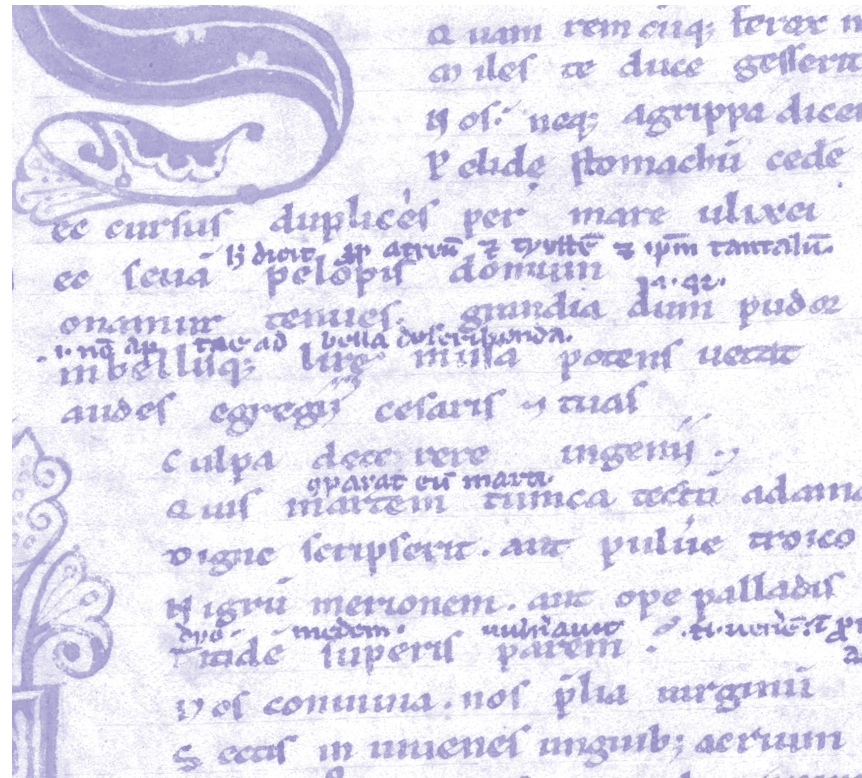 Quam rem cuiq; ferox n
Miles te duce gesserit
Nos. neq; agrippa dicer
Pelidę stomachū cede
ec cursus duplices per mare ulixei
h dicit atreū ⁊ tyestē ⁊ ipm tantalū.
ec seuā pelopis domum
onamur tenues. grandia dum pudor
.i. nō ad bella describenda.
inbellisq; lirę musa potens uetat
audes egregij cesaris ⁊ tuas
Culpa dete rere ingenij.
ꝯparat eū marti.
Quis martem tunica tectū adama
Digne scripserit. aut puluͤe troico
Nigrū merionem. aut ope palladis
uulnerauit
Titidē superis parem.
Nos conuiuia. nos p̄lia uirginū
Sectis in iuuenes unguib; acrium